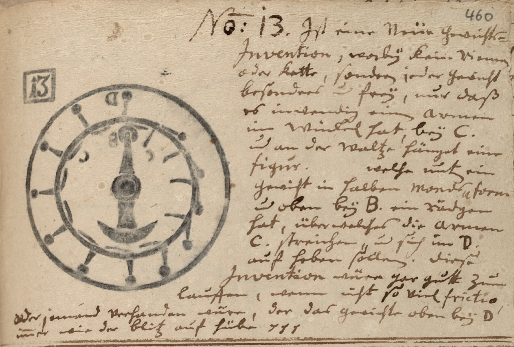 460
No: 13. Ist eine Neüe Gewichts=
Invention, worbeÿ kein Riemen
oder Kette, sondern jeder Gewicht
besonders u freÿ, nur daß
es inwendig einen Armen
im Winkel hat beÿ C.
u an der Waltze hänget eine
figur. welche mit ein
gewicht in halben Monds form
u oben beÿ B. ein rädgen
hat, über welches die Armen
C. streichen, u sich im D.
auf heben sollen. diese
Invention wäre gar gutt zum
lauffen, wenn nicht so viel frictio
oder jemand verhanden wäre, der das gewichte oben beÿ D
wie der blitz auf hübe
13
D
B
C